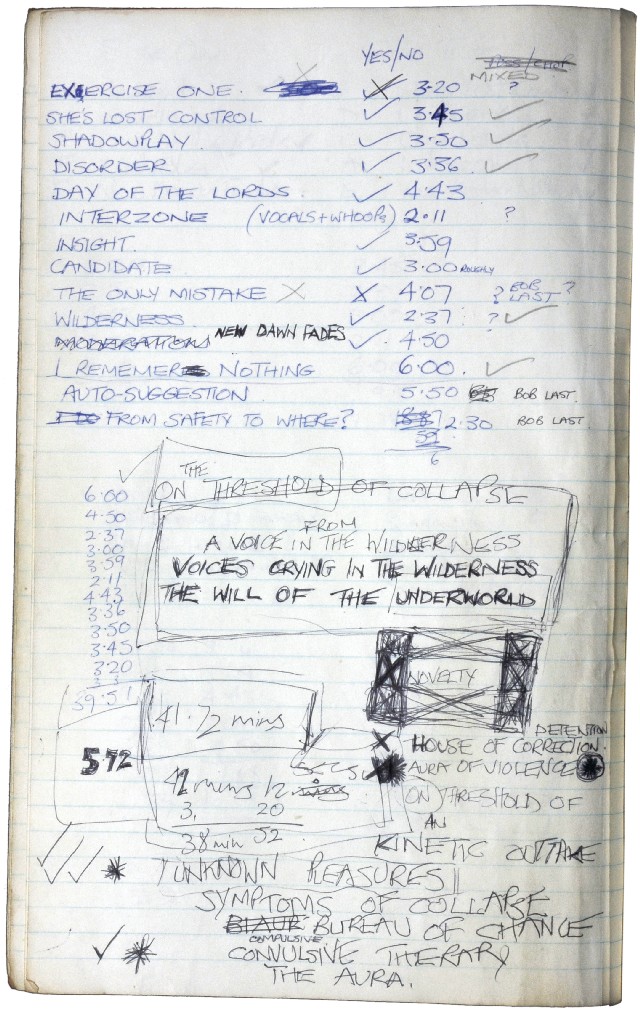 YES/NO
EXERCISE ONE. 3·20 MIXED ?
SHE'S LOST CONTROL 3·45
SHADOWPLAY 3·50
DISORDER 3·36
DAY OF THE LORDS. 4·43
INTERZONE (VOCALS+WHOOPS) 2·11 ?
INSIGHT. 3·59
CANDIDATE 3·00 ROUGHLY
THE ONLY MISTAKE X X 4·07 ? BOB LAST ?
WILDERNESS. 2·37 ?
MODERATION NEW DAWN FADES 4·50
I REMEMER NOTHING 6·00.
AUTO-SUGGESTION 5·50 BOB LAST.
FROM SAFETY TO WHERE? 2·30 BOB LAST
6
THE
ON THRESHOLD OF COLLAPSE
6·00
4·50
2·37
3·00
3·59
2·11
4·43
3·36
3·50
3·45
3·20
39·51
FROM
A VOICE IN THE WILDERNESS
VOICES CRYING IN THE WILDERNESS
THE WILL OF THE UNDERWORLD
X NOVELTY X
41·72 mins
5·72
42 mins 12 secs
3, 20
38 min 52
DETENTION
X HOUSE OF CORRECTION.
AURA OF VIOLENCE
(ON) THRESHOLD OF
AN
KINETIC OUTTAKE
UNKNOWN PLEASURES
SYMPTOMS OF COLLAPSE
BUREAU OF CHANCE
COMPULSIVE
CONVULSIVE THERAPY
THE AURA.